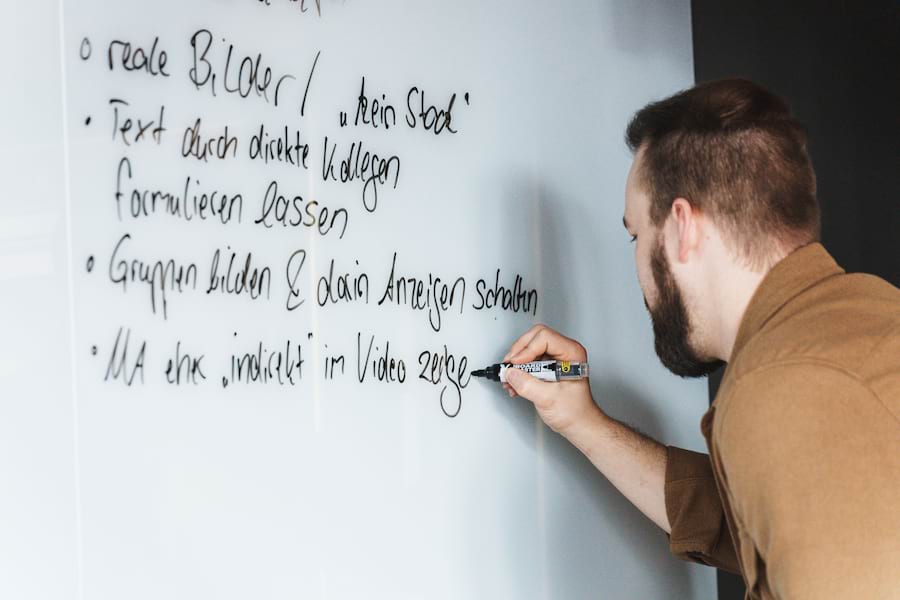 o reale Bilder / „kein Stock"
• Text durch direkte Kollegen
formulieren lassen
• Gruppen bilden & darin Anzeigen schalten
• MA eher „indirekt" im Video zeige
BOARD